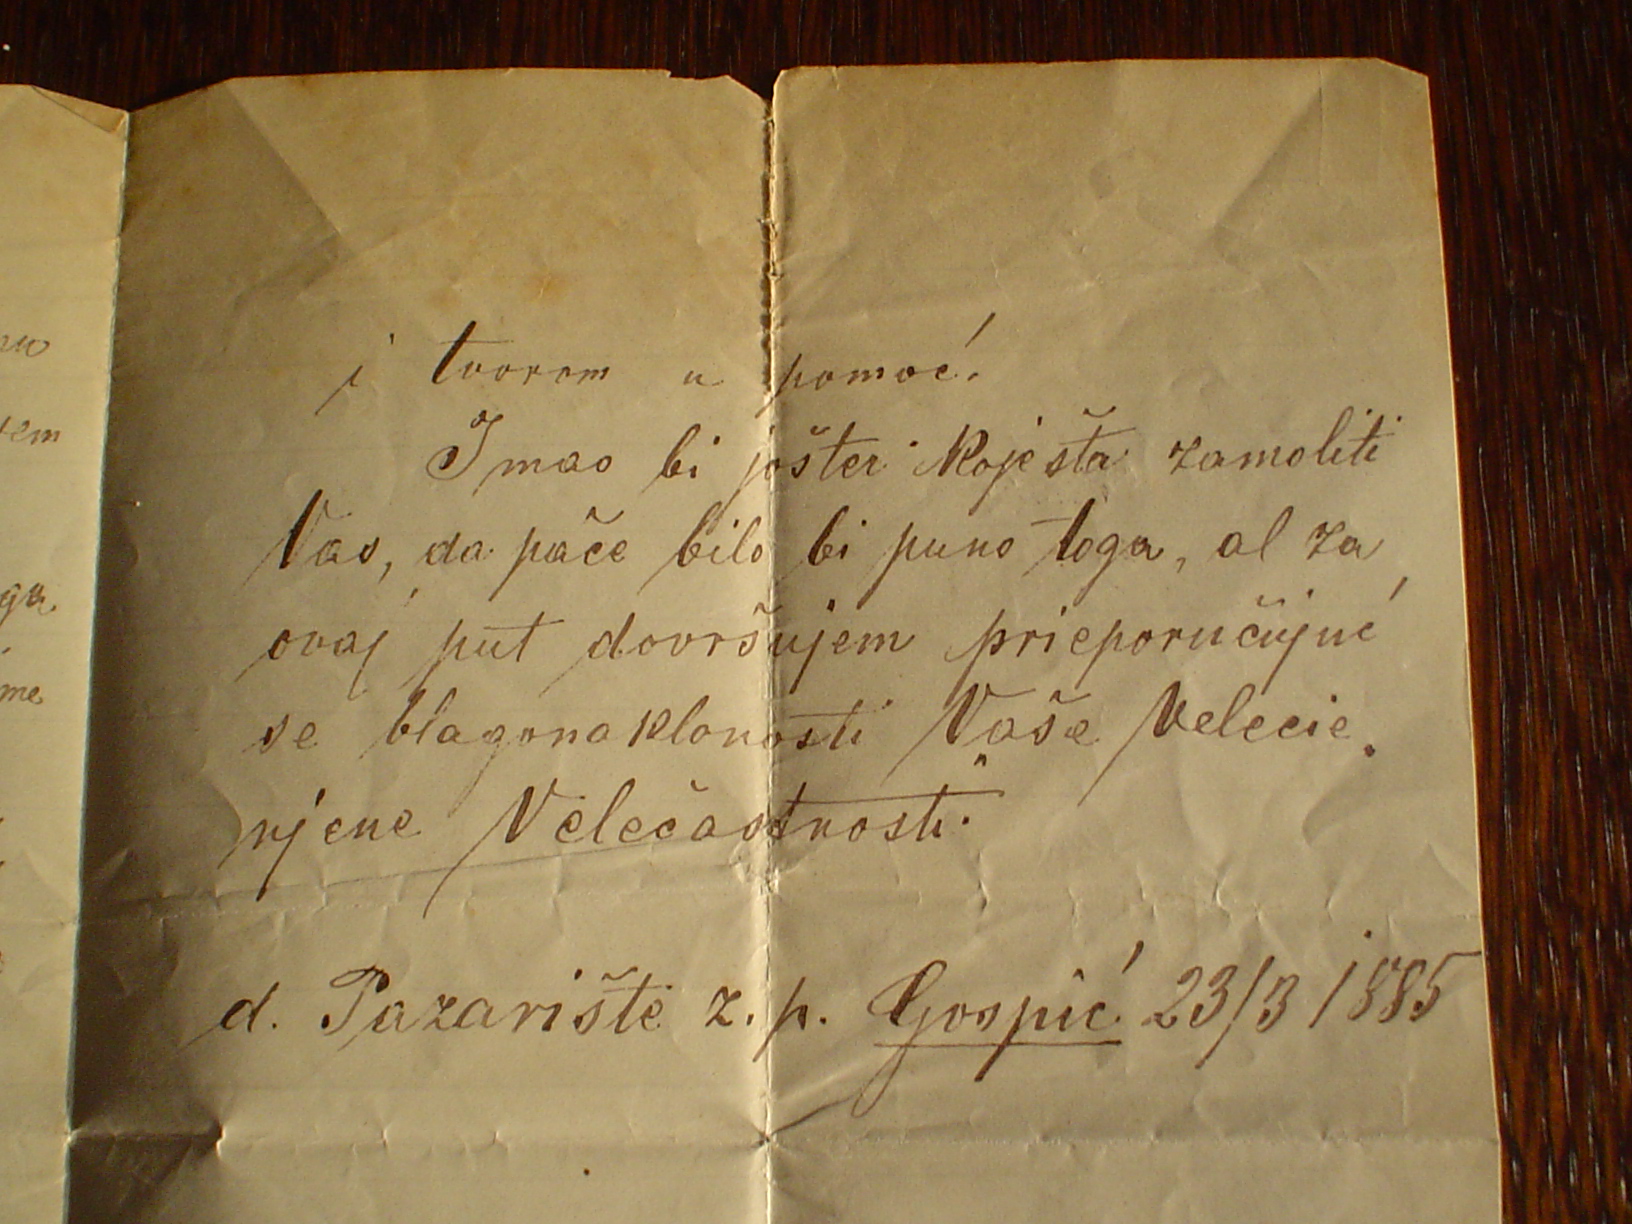 i tvorom u pomoć.
Imao bi jošter koješta zamoliti
Vas, da pače bilo bi puno toga, al za
ovaj put dovršujem prieporučujuć
se blagonaklonosti Vaše Velecie
njene Velečastnosti.
d. Pazarište z. p. Gospić 23/3 1885
em
ga.
me